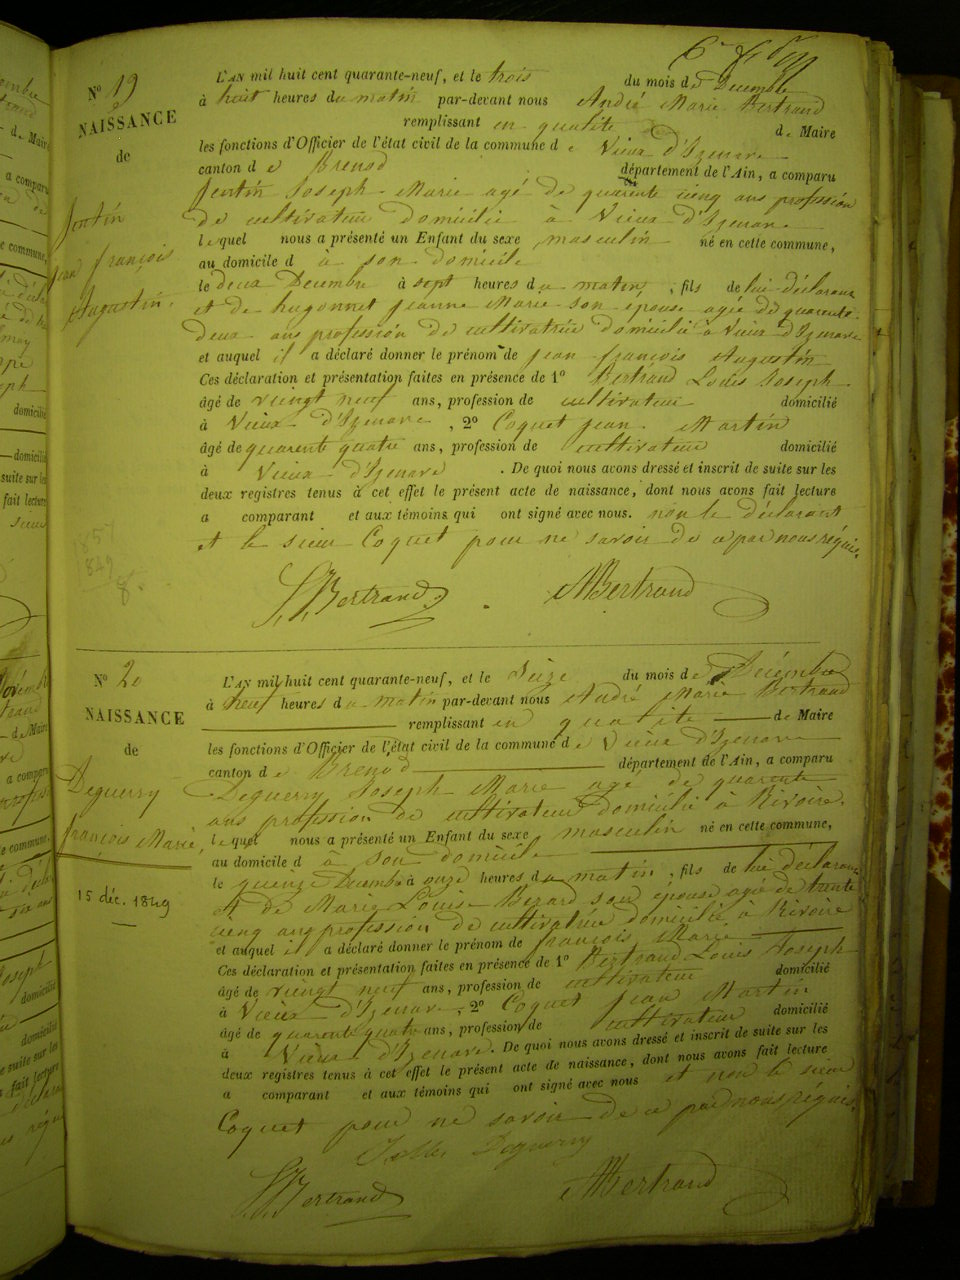 N° 19
NAISSANCE
de
Jentin
Jean François
Augustin.
L'AN mil huit cent quarante-neuf, et le trois du mois de Decembre
à huit heures du matin par-devant nous André Marie Bertrand
remplissant en qualité de Maire
les fonctions d'Officier de l'état civil de la commune de Vieux d'Izenave
canton de Brenod département de l'Ain, a comparu
Jentin Joseph Marie agé de quarente cieng ans profession
de cultivateur domicilié à Vieux d'Izenave
lequel nous a présenté un Enfant du sexe masculin né en cette commune,
au domicile d à son domicile
le deux Decembre à sept heures du matin, fils de lui déclarant
et de hugonnet jeanne Marie son épouse agée de quarente
deux ans profession de cultivatrice domicilié à Vieux d'Izenave
et auquel il a déclaré donner le prénom de jean françois Augustin
Ces déclaration et présentation faites en présence de 1° Bertrand Louis Joseph
âgé de vingt neuf ans, profession de cultivateur domicilié
à Vieux d'Izenave, 2° Coquet jean Martin
âgé de quarente quatre ans, profession de cultivateur domicilié
à Vieux d'Izenave. De quoi nous avons dressé et inscrit de suite sur les
deux registres tenus à cet effet le présent acte de naissance, dont nous avons fait lecture
a comparant et aux témoins qui ont signé avec nous. non le déclarant
et le sieur Coquet pour ne savoir de ce par nous réquis.
Bertrand
Bertrand
N° 20
NAISSANCE
de
Deguerry
françois Marie,
15 déc. 1849
L'AN mil huit cent quarante-neuf, et le seize du mois de Décembre
à neuf heures du matin par-devant nous André Marie Bertrand
remplissant en qualité de Maire
les fonctions d'Officier de l'état civil de la commune de Vieux d'Izenave
canton de Brenod département de l'Ain, a comparu
Deguerry Joseph Marie agé de quarente
ans profession de cultivateur domicilié à Rivoire.
lequel nous a présenté un Enfant du sexe masculin né en cette commune,
au domicile d à son domicile
le quinze Decembre à onze heures du matin, fils de lui déclarant
et de Marie Louise Bizard son épouse agée de trente
cieng ans profession de cultivatrice domicilié à Rivoire
et auquel il a déclaré donner le prénom de françois Marie
Ces déclaration et présentation faites en présence de 1° Bertrand Louis Joseph
âgé de vingt neuf ans, profession de cultivateur domicilié
à Vieux d'Izenave, 2° Coquet Jean Martin
âgé de quarente quatre ans, profession de cultivateur domicilié
à Vieux d'Izenave. De quoi nous avons dressé et inscrit de suite sur les
deux registres tenus à cet effet le présent acte de naissance, dont nous avons fait lecture
a comparant et aux témoins qui ont signé avec nous et non le sieur
Coquet pour ne savoir de ce par nous réquis.
Deguerry
Bertrand
Bertrand